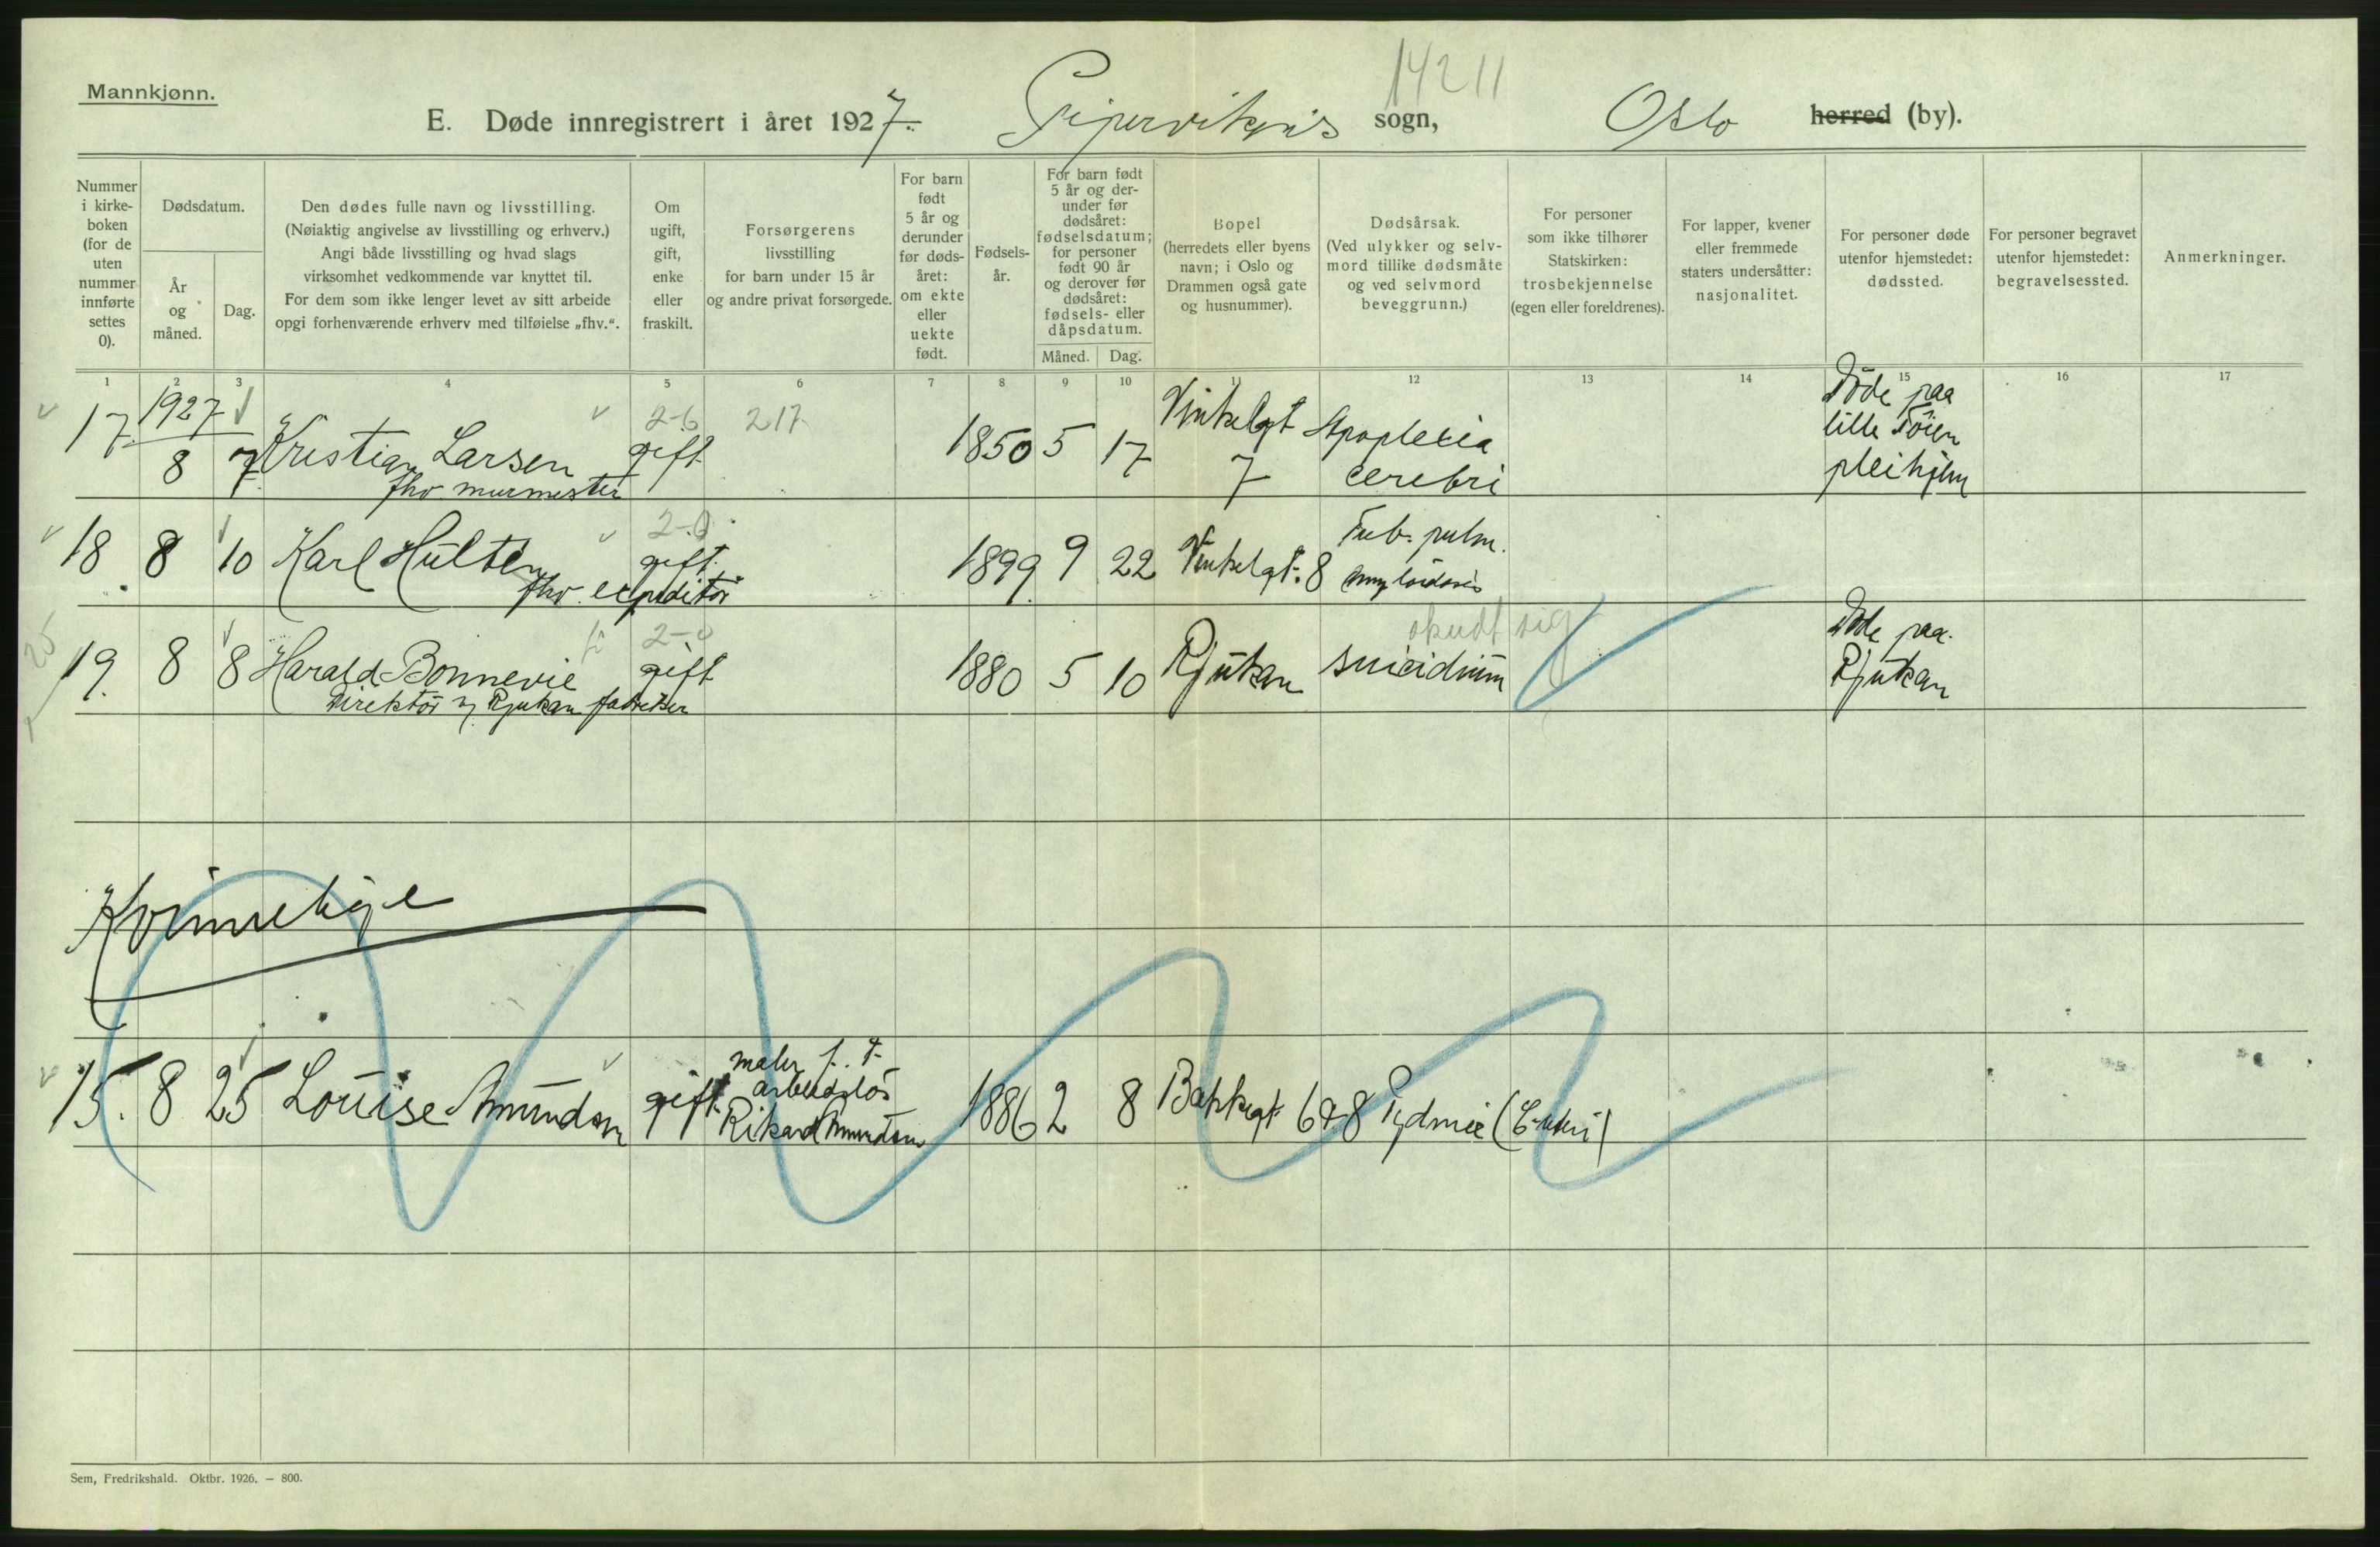 Mannkjønn.
14211
E. Døde innregistrert i året 1927. Pipervikens sogn, Oslo herred (by).
Nummer i kirke-boken (for de uten nummer innførte settes 0).
Dødsdatum.
År og måned.
Dag.
Den dødes fulle navn og livsstilling.
(Nøiaktig angivelse av livsstilling og erhverv.)
Angi både livsstilling og hvad slags
virksomhet vedkommende var knyttet til.
For dem som ikke lenger levet av sitt arbeide
opgi forhenværende erhverv med tilføielse „fhv.“.
Om ugift, gift, enke eller fraskilt.
Forsørgerens
livsstilling
for barn under 15 år
og andre privat forsørgede.
For barn født 5 år og derunder før døds-året: om ekte eller uekte født.
Fødsels-år.
For barn født 5 år og der-under før dødsåret: fødselsdatum; for personer født 90 år og derover før dødsåret: fødsels- eller dåpsdatum.
Måned. Dag.
Bopel
(herredets eller byens
navn; i Oslo og
Drammen også gate
og husnummer).
Dødsårsak.
(Ved ulykker og selv-
mord tillike dødsmåte
og ved selvmord
beveggrunn.)
For personer
som ikke tilhører
Statskirken:
trosbekjennelse
(egen eller foreldrenes).
For lapper, kvener
eller fremmede
staters undersåtter:
nasjonalitet.
For personer døde
utenfor hjemstedet:
dødssted.
For personer begravet
utenfor hjemstedet:
begravelsessted.
Anmerkninger.
1 2 3 4 5 6 7 8 9 10 11 12 13 14 15 16 17
17. 1927 8 7. Kristian Larsen
fhv murmester
2-6
gift
217
1850 5 17
Vinkelgt
7
Apoplexia
cerebri
Döde paa
lille Töien
pleihjem
18 8 10 Karl Hulten
fhv. expeditör
2-0
gift.
1899 9 22 Vinkelgt. 8
Tub. pulm.
Amyloidosis
25
19. 8 8 Harald Bonnevie
Direktör v. Rjukan fabrikker
2-0
gift
1880 5 10 Rjukan
skudt sig
suicidium
Döde paa.
Rjukan
Kvinnekjøn
15. 8 25 Louise Amundsen gift
maler f. t.
arbeidslös
Rikard Amundsen
1886 2 8 Bakkegt 6
Sem, Fredrikshald. Oktbr. 1926. – 800.